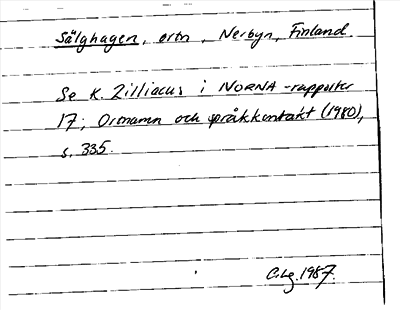 Sälghagen, ortn, Nerbyn, Finland.
Se K. Zilliacus i NORNA-rapporter
17; Ortnamn och språkkontakt (1980),
s. 335.
C.Lg. 1987.